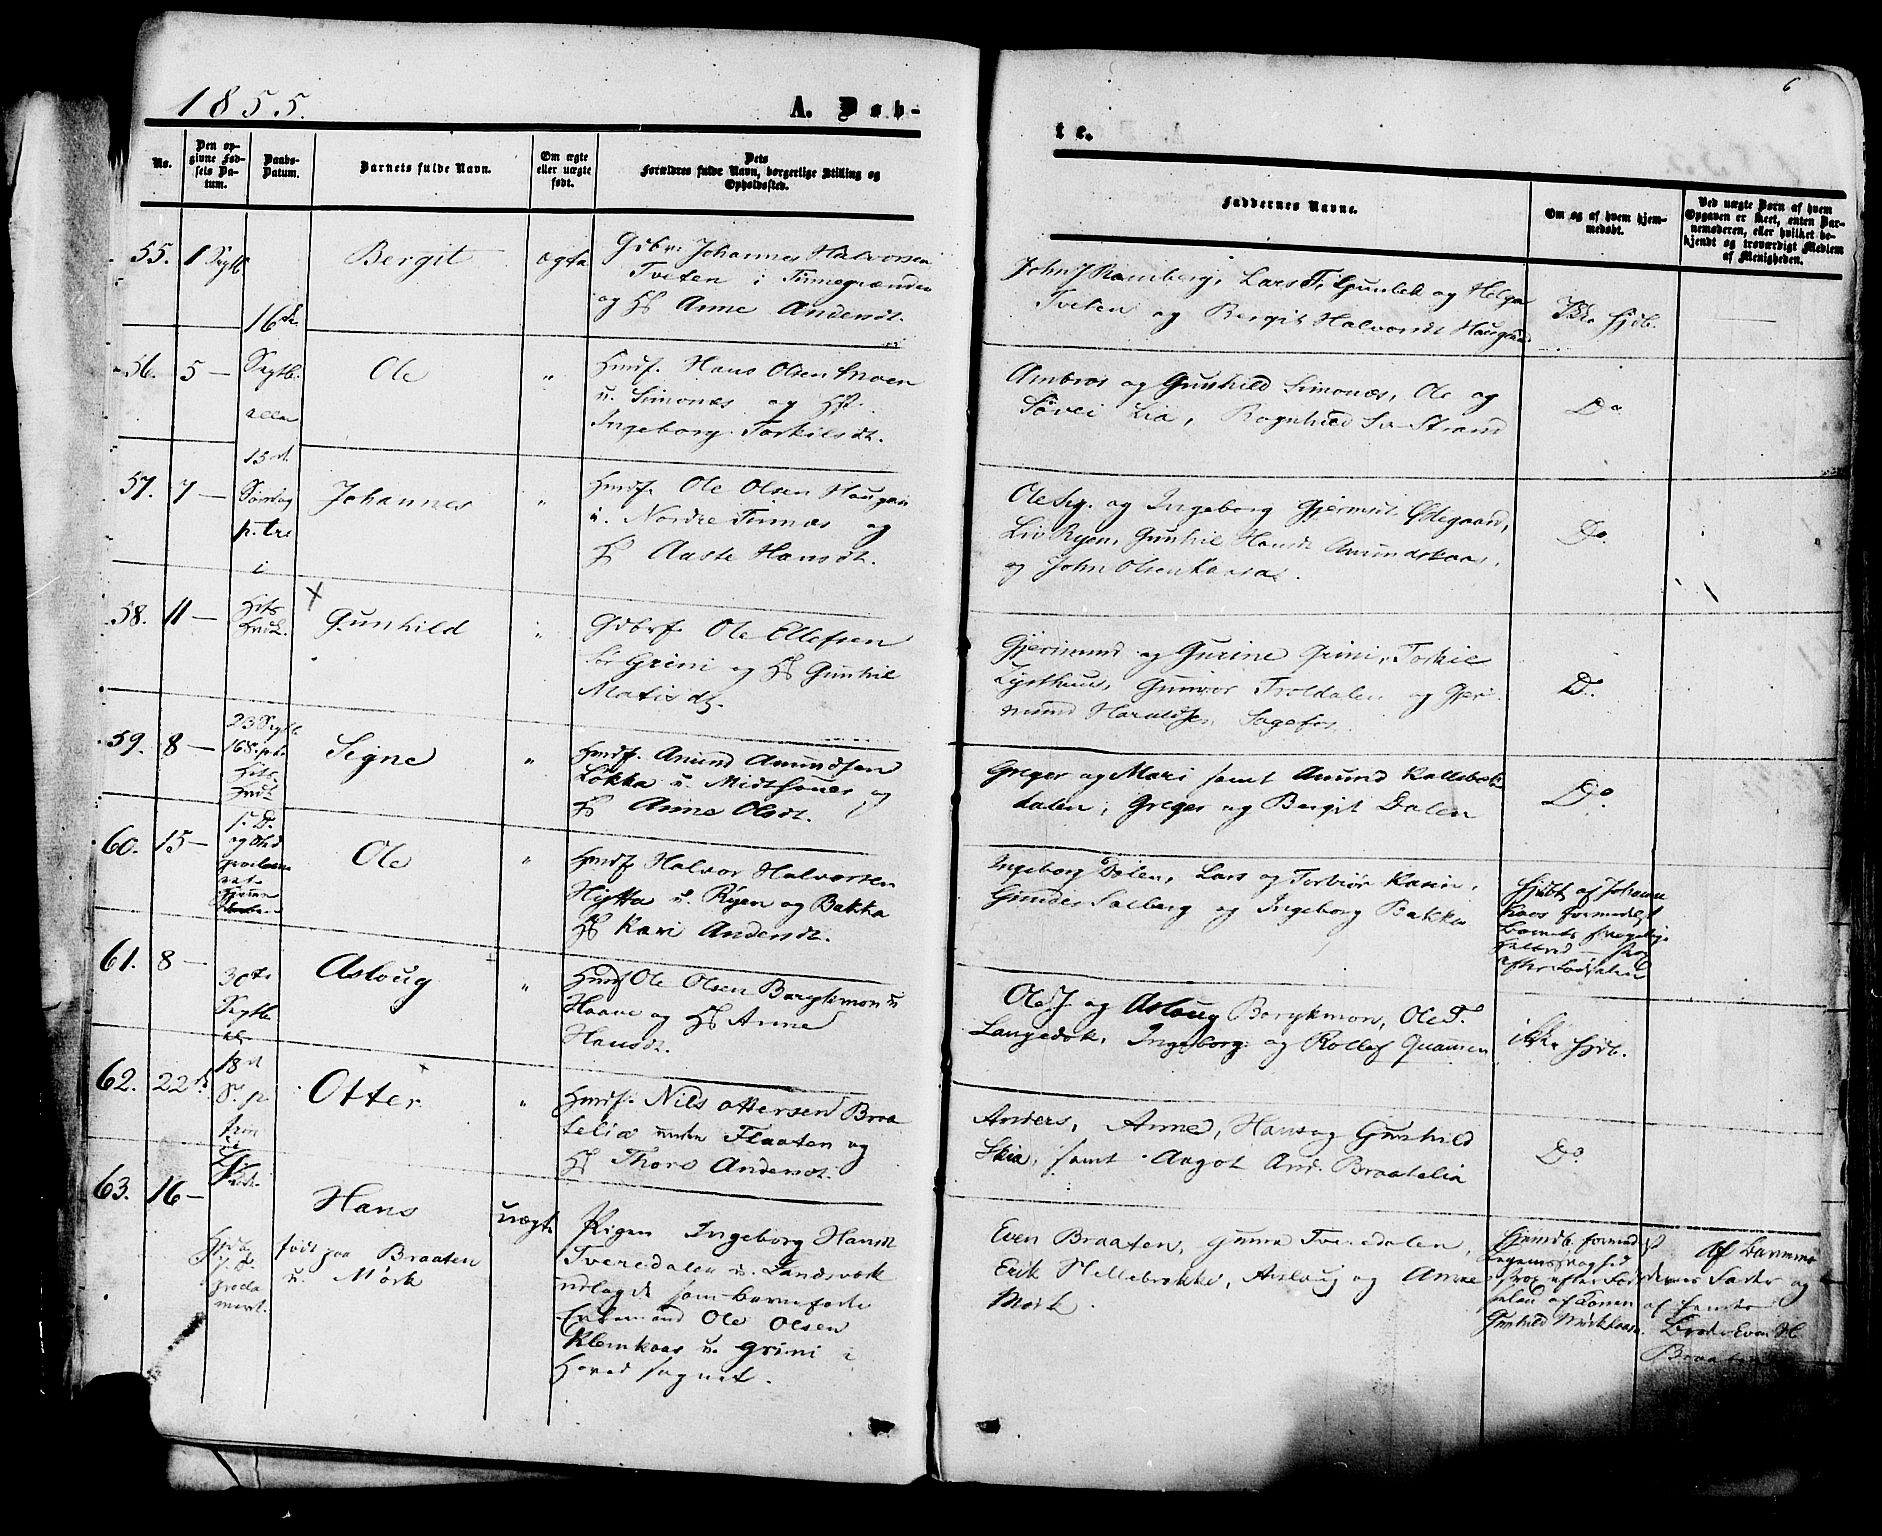 1855.
A. Døb-
te.
6
No.
Den op-
givne Fød-
sels Da-
tum.
Daabs-
Datum.
Barnets fulde Navn.
Om ægte
eller uægte
født.
Dets
Forældres fulde Navn, borgerlige Stilling og
Opholdssted.
Faddernes Navne.
Om og af hvem hjem-
medøbt.
Ved uægte Born af hvem
Opgaven er skeet, enten Bar-
nemoderen, eller hvilket be-
kjendt og troværdigt Medlem
af Menigheden.
55. 1 Septb.
16de
Bergit
ægte
Gdbr. Johannes Halvorsen
Tveten i Tinnegrænden
og H Anne Andersdt.
John J Ramberg, Lars T, Gunlek og Helga
Tveten og Bergit Halvorsdt Haugrud
Ikke Hjdb.
56. 5 —
Septb.
eller
Ole
"
Hmdf. Hans Olsen Moen
u. Simonæs og H
Ingeborg Torkilsdt.
Ambros og Gunhild Simonæs, Ole og
Søvei Lia, Ragnhild Strand
Do
57. 7 —
15de
Søndag
p. tre
i
Johannes
"
Hmdf. Ole Olsen Haugen
u. Nordre Tinnæs og
H Aaste Hansdt.
Ole Sig. og Ingeborg Gjermsdt Ødegaard,
Liv Ryen, Gunhil Hansdt Amundskaas,
og John Olsen Kaasa.
Do.
58. 11 —
Hits
Gunhild
"
Gdbrf. Ole Ellefsen
Sør Grini og H Gunhil
Matisdt.
Gjermund og Gurine Grini, Torkil
Lysthuus, Gunvor Troldalen og Gjer
mund Haraldsen Sagefos.
Do.
59. 8 —
23 Septb.
16 S. p.
Hits
Signe
"
Hmdf. Amund Amundsen
Løkka u. og
H Anne Olsdt.
Greger og Mari samt Amund Kallebæk
dalen, Greger og Bergit Dalen
Do.
60. 15 —
Ole
"
Hmdf. Halvor Halvorsen
Hytta u. Ryen og Bakka
H Kari Andersdt.
Ingeborg Dalen, Lars og Torbjør Kasin,
Gunder Salberg og Ingeborg Bakka
Hjdbt af Johanne
Kaas formedelst
Barnets
strax
efter Fødselen
61. 8 —
30te
Septb.
Asloug
"
Hmdf Ole Olsen Borgkmon u
Haave og H Anne
Hansdt.
Ole J. og Aslaug Borgkmon, Ole T.
Langedok, Ingeborg og Rollef Quamen
ikke Hjdb.
62. 22d
18de
S. p.
Otter
"
Hmdf. Nils Ottersen Braa
telia under Flaaten og
H Thore Andersdt.
Anders, Anne, Hans og Gunhild
Skia, samt Aagot And. Braatelia
Do.
63. 16 —
Hans
født paa Braaten
u. Mørk
uægte
Pigen Ingeborg Hansdt
Tveredalen u. Landsværk
udlagde som barnefader
Enkemand Ole Olsen
Klemkaas u. Grini i
Hovedsognet.
Even Braaten, Gunn Tveredalen,
Erik Hellebrække, Aslaug og Anne
Mørk.
Hjemdb. formedelst
svaghed
strax efter Fød
selen af Konen
Gunhild Mørkkaas.
Af Barnemo
derens Fader og
af hendes
Broder Even H
Braaten